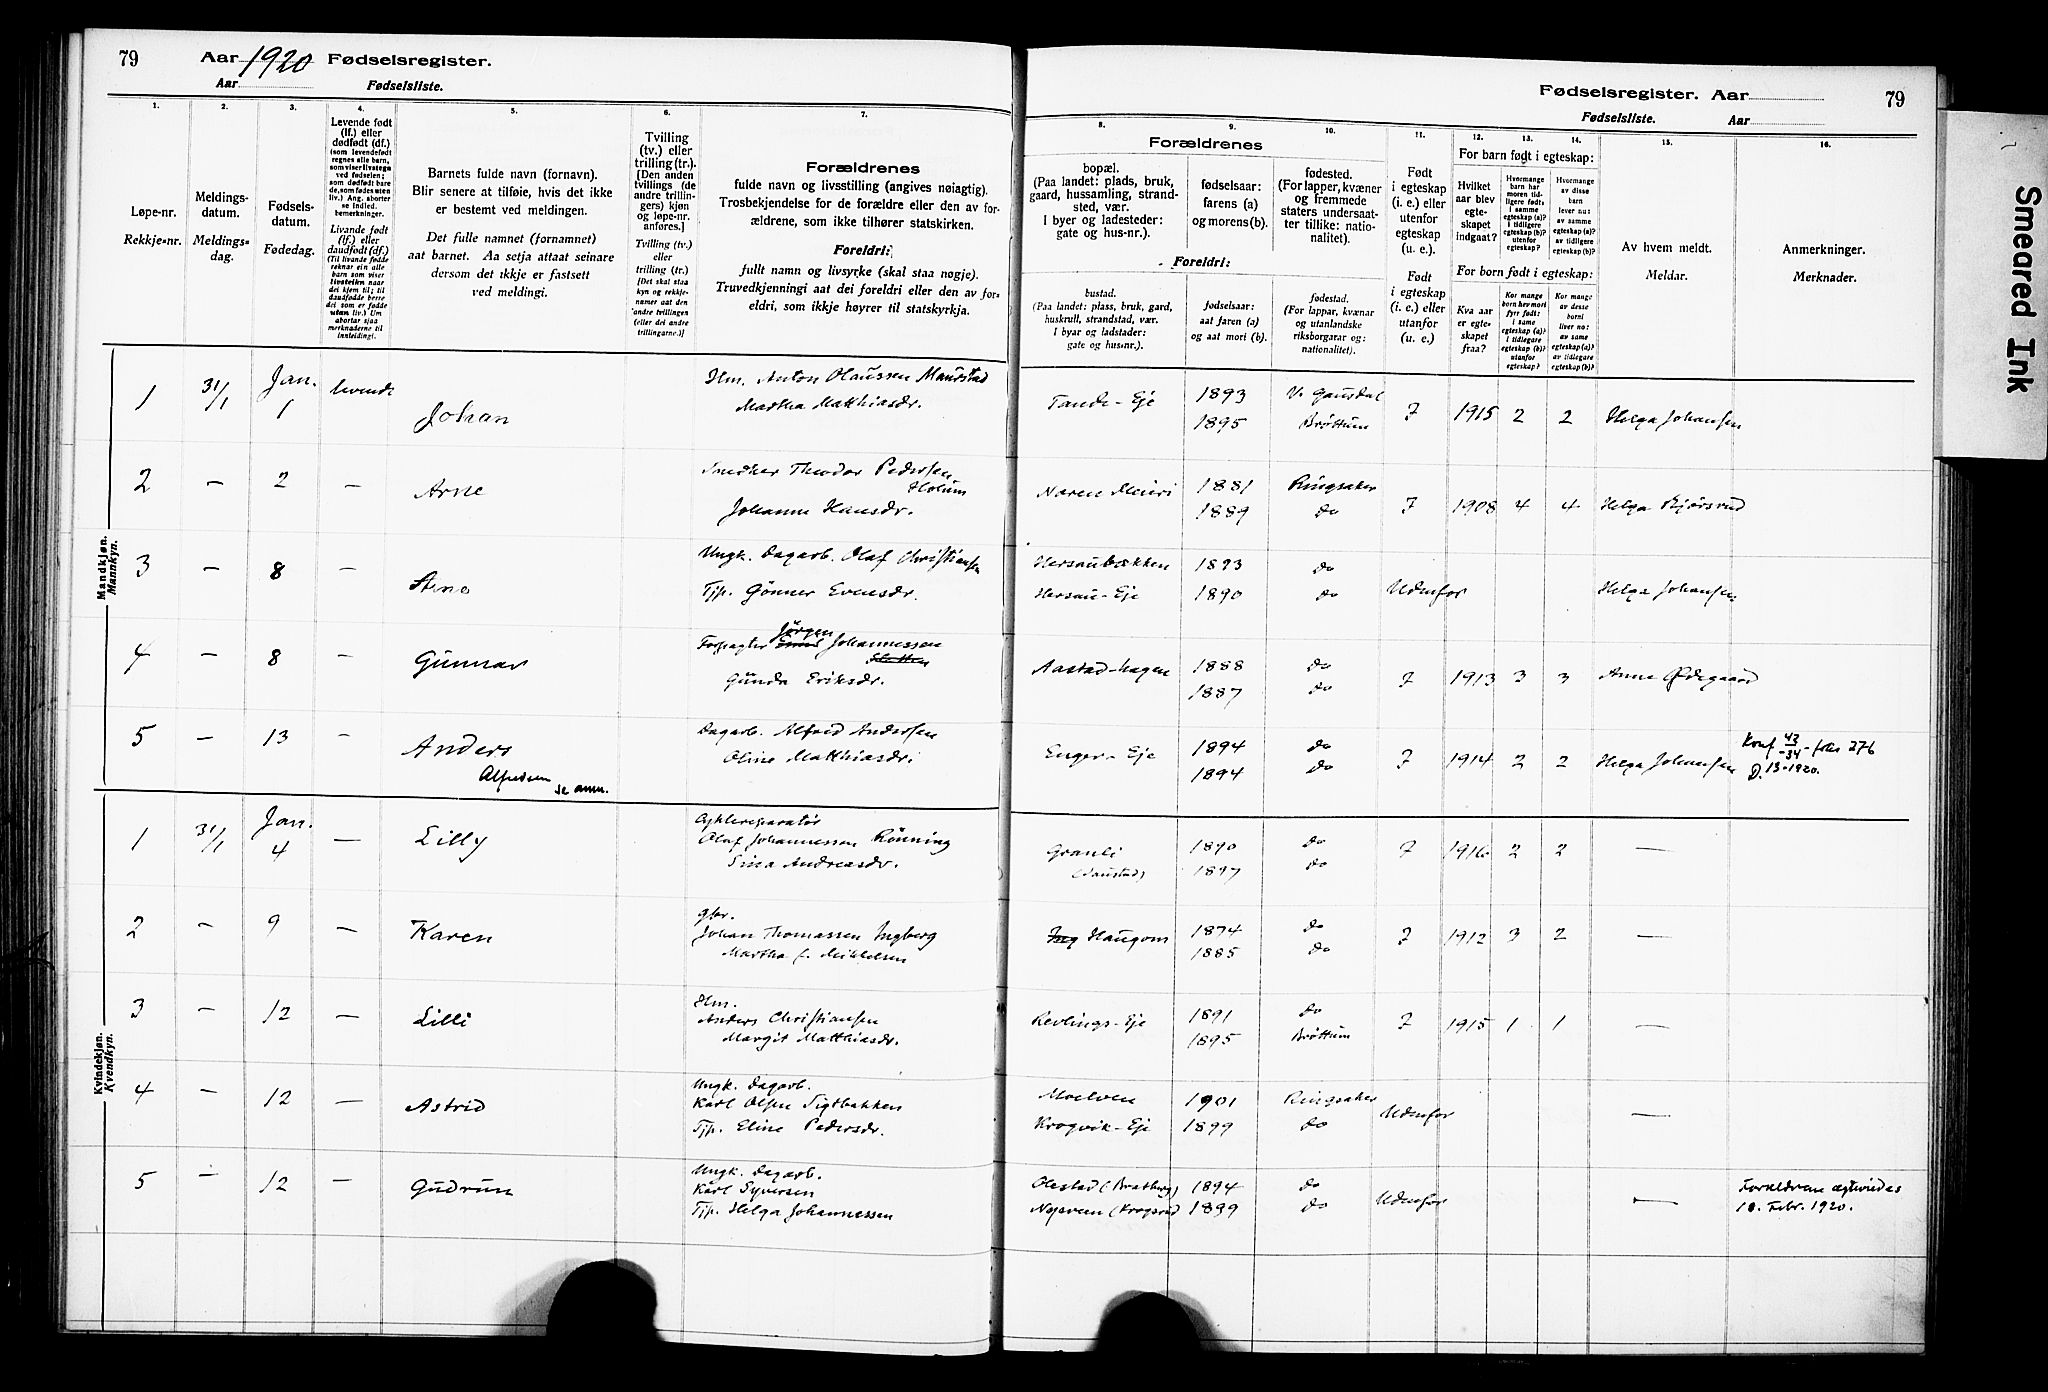 79
Aar 1920 Fødselsregister.
Aar Fødselsliste.
Fødselsregister. Aar
79
Fødselsliste. Aar
1. 2. 3. 4. 5. 6. 7.
Løpe-nr.
Rekkje-nr.
Meldings-
datum.
Meldings-
dag.
Fødsels-
datum.
Fødedag.
Levende født
(lf.) eller
dødfødt (df.)
(som levendefødt
regnes alle barn,
som viser livstegn
ved fødselen;
som dødfødt bar-
de, som fødes uten
liv.) Ang. aborter
se indled.
bemerkninger.
Livande født
(lf.) eller
daudfødt (df.)
(Til livande fødde
reknar ein alle
barn som viser
livsteikn naar
dei kjem til; til
daudfødde berre
dei som er fødde
utan liv.) Um
abortar sjaa
merknaderne til
innleidingi.
Barnets fulde navn (fornavn).
Blir senere at tilføie, hvis det ikke
er bestemt ved meldingen.
Det fulle namnet (fornamnet)
aat barnet. Aa setja attaat seinare
dersom det ikkje er fastsett
ved meldingi.
Tvilling
(tv.) eller
trilling (tr.).
[Den anden
tvillings (de
andre trillin-
gers) kjøn
og løpe-nr.
anføres.]
Tvilling (tv.)
eller
trilling (tr.)
[Det skal staa
kyn og rekkje-
numer aat den
andre tvillingen
(eller dei andre
trillingarne.)]
Forældrenes
fulde navn og livsstilling (angives nøiagtig).
Trosbekjendelse for de forældre eller den av for-
ældrene, som ikke tilhører statskirken.
Foreldri:
fullt namn og livsyrke (skal staa nøgje).
Truvedkjenningi aat dei foreldri eller den av for-
eldri, som ikkje høyrer til statskyrkja.
8. 9. 10. 11. 12. 13. 14. 15. 16.
Forældrenes
bopæl.
(Paa landet: plads, bruk,
gaard, hussamling, strand-
sted, vær.
I byer og ladesteder:
gate og hus-nr.).
fødselsaar:
farens (a)
og morens (b).
fødested.
(For lapper, kvæner
og fremmede
staters undersaat-
ter tillike: natio-
nalitet).
Foreldri:
bustad.
(Paa landet: plass, bruk, gard,
huskrull, strandstad, vær.
I byar og ladstader:
gate og hus-nr.).
fødselsaar:
aat faren (a)
og aat mori (b).
fødestad.
(For lappar, kvænar
og utanlandske
riksborgarar og:
nationalitet).
Født
i egteskap
(i. e.) eller
utenfor
egteskap
(u. e.).
Født
i egteskap
(i. e.) eller
utanfor
(u. e.).
For barn født i egteskap:
Hvilket
aar blev
egte-
skapet
indgaat?
Hvormange
barn har
moren tid-
ligere født:
i samme
egteskap (a)?
i tidligere
egteskap (b)?
utenfor
egteskap?
Hvormange
av disse
barn
lever nu:
av samme
egteskap (a)?
av tidligere
egteskap (b)?
For born født i egteskap:
Kva aar
er egte-
skapet
fraa?
Kor mange
born hev mori
fyrr født:
i same
egteskap (a)?
i tidlegare
egteskap (b)?
utanfor
egteskap?
Kor mange
av desse
borni
liver no:
av same
egteskap (a)?
av tidlegare
egteskap (b)?
Av hvem meldt.
Meldar.
Anmerkninger.
Merknader.
Mandkjøn.
Mannkyn.
1 31/1 Jan. 1 levende Johan Hm. Anton Olaussen Maurstad
Martha Matthiasdr. Tande-Eje 1893 V. Gausdal 1895 Brøttum 7 1915 2 2 Helga Johansen
2 — 2 — Arne Snedker Theodor Pedersen
Holum
Johanne Hansdr. Næren 1881 Ringsaker 1889 do 7 1908 4 4 Helga Bjørsrud
3 — 8 — Arne Ungk. Dagarb. Olaf Christiansen
Tjp. Gønner Evensdr. Hersaubækken 1893 do Hersau-Eje 1890 do Udenfor Helga Johansen
4 — 8 — Gunnar Forpagter Jørgen Johannessen
Gunda Eriksdr. Aastad-hagen 1888 do 1887 do 7 1913 3 3 Anne Ødegaard
5 — 13 — Anders Dagarb. Alfred Andersen
Oline Matthiasdr. Enger-Eje 1894 do 1894 do 7 1914 2 2 Helga Johansen Konf 43/-34 - folio 276
D. 13-1920.
Alfredsen se anm.
Kvindekjøn.
Kvendkyn.
1 31/1 Jan. 4 — Lilly Cyklereparatør
Olaf Johannessen Rønning
Sina Andreasdr. Granli 1890 do (Saustad) 1897 do 7 1916 2 2 —
2 — 9 — Karen Gbr.
Johan Thomassen Ingberg
Martha f. Mikkelsen Ing Haugom 1874 do 1885 do 7 1912 3 2 —
3 — 12 — Lilli Hm.
Anders Christiansen
Margit Matthiasdr. Revlings-Eje 1891 do 1895 Brøttum 7 1915 1 1 —
4 — 12 — Astrid Ungk. Dagarb.
Karl Olsen Sigtbakken
Tjp. Eline Pedersdr. Moelven 1901 Ringsaker Krogvik-Eje 1899 do Udenfor —
5 — 12 — Gudrun Ungk. Dagarb.
Karl Syversen
Tjp. Helga Johannessen Olestad (Bratberg) 1894 do Nysveen (Krogsrud) 1899 do Udenfor — Forældrene egteviedes
10. Febr. 1920.
Smeared Ink